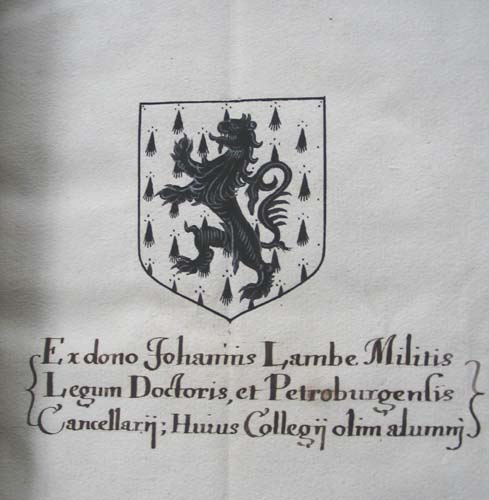 Ex dono Johannis Lambe Militis
Legum Doctoris, et Petroburgensis
Cancellarij; Huius Collegij olim alumnj